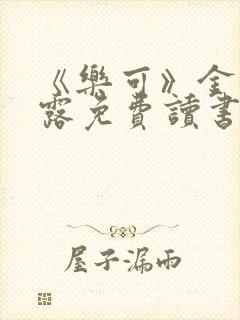 《樂可》全
露免費讀書
屋子漏雨